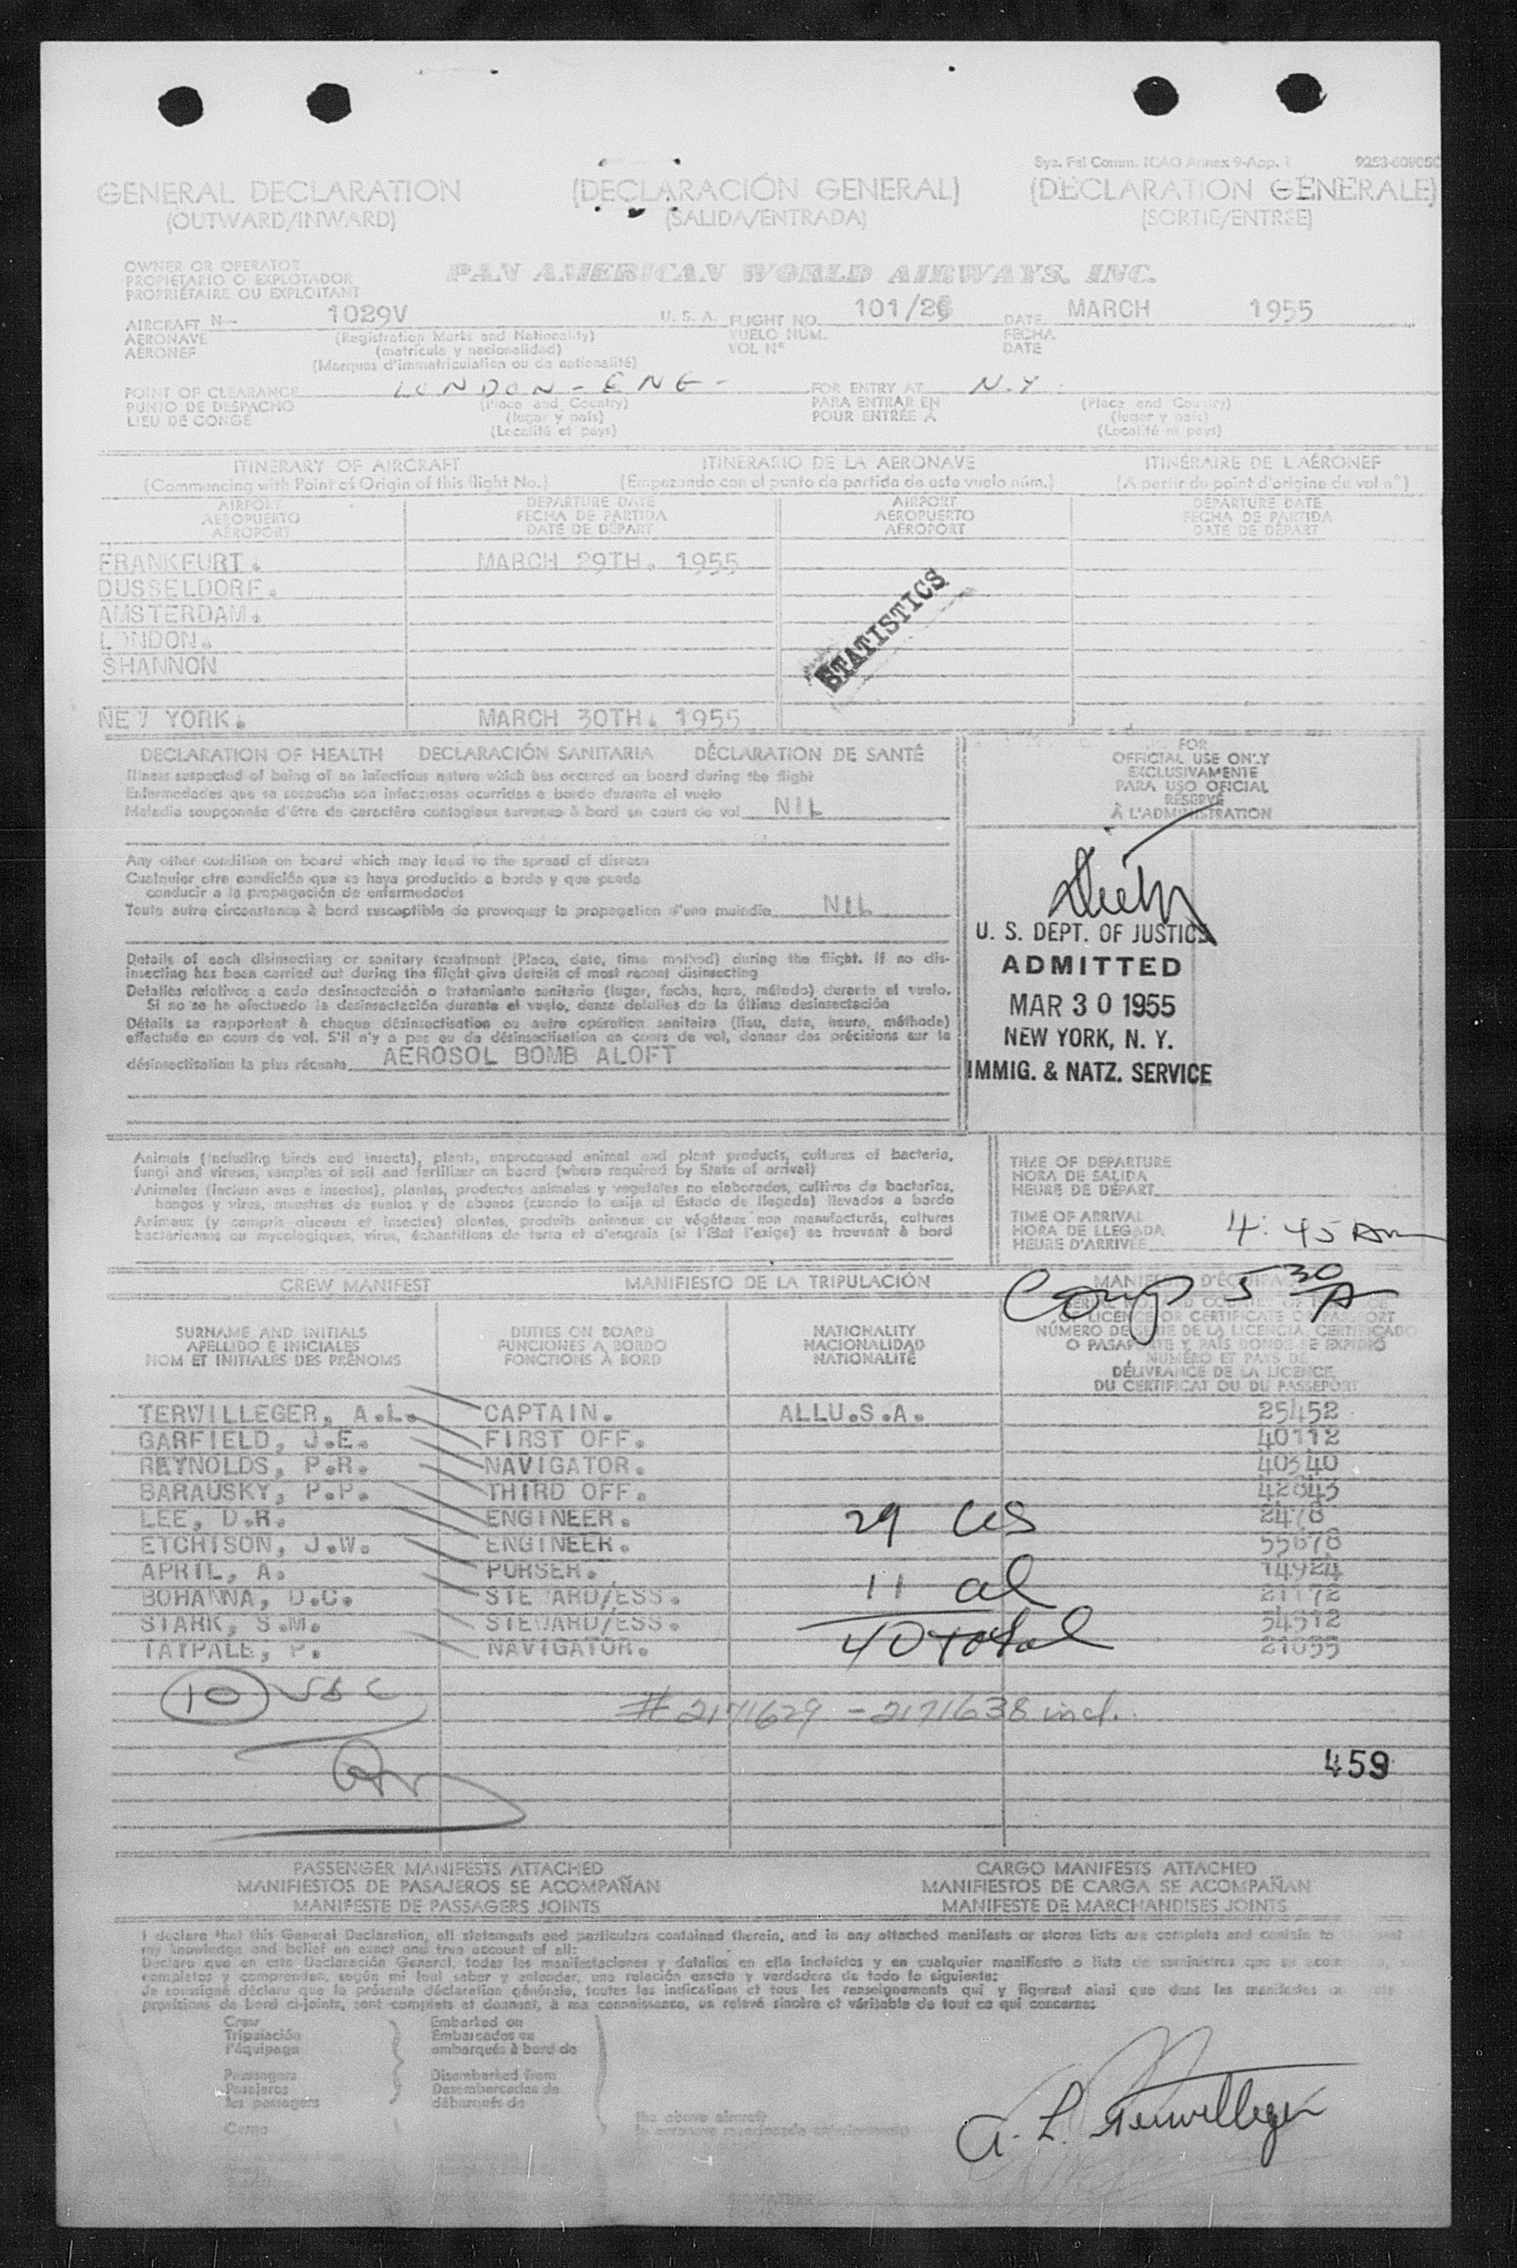 Sys. Fel Comm. ICAO Annex 9-App. 1
GENERAL DECLARATION (DECLARACIÓN GENERAL) (DÉCLARATION GÉNÉRALE)
(OUTWARD/INWARD) (SALIDA/ENTRADA) (SORTIE/ENTRÉE)
OWNER OR OPERATOR
PROPIETARIO O EXPLOTADOR
PROPRIÉTAIRE OU EXPLOITANT
PAN AMERICAN WORLD AIRWAYS, INC.
AIRCRAFT N- 1029V U. S. A. FLIGHT NO. 101/26 DATE MARCH 1955
AÉRONAVE (Registration Marks and Nationality) VUELO NUM. FECHA
AÉRONEF (matrícula y nacionalidad) VOL Nº DATE
(Marques d'immatriculation ou de nationalité)
POINT OF CLEARANCE LONDON - ENG - FOR ENTRY AT N.Y.
PUNTO DE DESPACHO (Place and Country) PARA ENTRAR EN (Place and Country)
LIEU DE CONGÉ (lugar y país) POUR ENTRÉE À (lugar y país)
(Localité et pays) (Localité et pays)
ITINERARY OF AIRCRAFT ITINERARIO DE LA AERONAVE ITINÉRAIRE DE L'AÉRONEF
(Commencing with Point of Origin of this flight No.) (Empezando con el punto de partida de este vuelo núm.) (A partir du point d'origine du vol nº)
AIRPORT DEPARTURE DATE AIRPORT DEPARTURE DATE
AEROPUERTO FECHA DE PARTIDA AEROPUERTO FECHA DE PARTIDA
AÉROPORT DATE DE DÉPART AÉROPORT DATE DE DÉPART
FRANKFURT. MARCH 29TH. 1955
DUSSELDORF.
AMSTERDAM.
LONDON.
SHANNON
STATISTICS
NEW YORK. MARCH 30TH. 1955
DECLARATION OF HEALTH DECLARACIÓN SANITARIA DÉCLARATION DE SANTÉ
Illness suspected of being of an infectious nature which has occured on board during the flight
Enfermedades que se sospecha son infecciosas ocurridas a bordo durante el vuelo
Maladie soupçonnée d'être de caractère contagieux survenue à bord en cours de vol NIL
Any other condition on board which may lead to the spread of disease
Cualquier otra condición que se haya producido a bordo y que pueda
conducir a la propagación de enfermedades
Toute autre circonstance à bord susceptible de provoquer la propagation d'une maladie NIL
Details of each disinsecting or sanitary treatment (Place, date, time method) during the flight. If no dis-
insecting has been carried out during the flight give details of most recent disinsecting
Detalles relativos a cada desinsectación o tratamiento sanitario (lugar, fecha, hora, método) durante el vuelo.
Si no se ha efectuado la desinsectación durante el vuelo, dense detalles de la última desinsectación
Détails se rapportant à chaque désinsectisation ou autre opération sanitaire (lieu, date, heure, méthode)
effectuée en cours de vol. S'il n'y a pas eu de désinsectisation en cours de vol, donner des précisions sur la
désinsectisation la plus récente AEROSOL BOMB ALOFT
FOR
OFFICIAL USE ONLY
EXCLUSIVAMENTE
PARA USO OFICIAL
RÉSERVÉ
À L'ADMINISTRATION
U. S. DEPT. OF JUSTICE
ADMITTED
MAR 30 1955
NEW YORK, N. Y.
IMMIG. & NATZ. SERVICE
Animals (including birds and insects), plants, unprocessed animal and plant products, cultures of bacteria,
fungi and viruses, samples of soil and fertilizer on board (where required by State of arrival)
Animales (incluso aves e insectos), plantas, productos animales y vegetales no elaborados, cultivos de bacterias,
hongos y virus, muestras de suelos y de abonos (cuando lo exija el Estado de llegada) llevados a bordo
Animaux (y compris oiseaux et insectes) plantes, produits animaux ou végétaux non manufacturés, cultures
bactériennes ou mycologiques, virus, échantillons de terre et d'engrais (si l'État l'exige) se trouvant à bord
TIME OF DEPARTURE
HORA DE SALIDA
HEURE DE DÉPART
TIME OF ARRIVAL
HORA DE LLEGADA 4:45 Am
HEURE D'ARRIVÉE
CREW MANIFEST MANIFIESTO DE LA TRIPULACIÓN MANIFESTE D'ÉQUIPAGE
Comp 5 30/A
SURNAME AND INITIALS DUTIES ON BOARD NATIONALITY
APELLIDO E INICIALES FUNCIONES A BORDO NACIONALIDAD
NOM ET INITIALES DES PRÉNOMS FONCTIONS À BORD NATIONALITÉ
OF LICENCE OR CERTIFICATE OR PASSPORT
NÚMERO DE SERIE DE LA LICENCIA, CERTIFICADO
O PASAPORTE Y PAÍS DONDE SE EXPIDIÓ
NUMÉRO ET PAYS DE
DÉLIVRANCE DE LA LICENCE
DU CERTIFICAT OU DU PASSEPORT
TERWILLEGER, A.L. CAPTAIN. ALLU.S.A. 25452
GARFIELD, J.E. FIRST OFF. 40112
REYNOLDS, P.R. NAVIGATOR. 40340
BARAUSKY, P.P. THIRD OFF. 42843
LEE, D.R. ENGINEER. 2478
ETCHISON, J.W. ENGINEER. 55678
APRIL, A. PURSER. 14924
BOHANNA, D.C. STEWARD/ESS. 21172
STARK, S.M. STEWARD/ESS. 54512
TATPALE, P. NAVIGATOR. 21055
29 US
11 al
40 total
10 USC
# 2171629 - 2171638 incl.
459
PASSENGER MANIFESTS ATTACHED CARGO MANIFESTS ATTACHED
MANIFIESTOS DE PASAJEROS SE ACOMPAÑAN MANIFIESTOS DE CARGA SE ACOMPAÑAN
MANIFESTE DE PASSAGERS JOINTS MANIFESTE DE MARCHANDISES JOINTS
I declare that this General Declaration, all statements and particulars contained therein, and in any attached manifests or stores lists are complete and contain to
my knowledge and belief an exact and true account of all:
Declaro que en esta Declaración General, todas las manifestaciones y detalles en ella incluidos y en cualquier manifiesto o lista de suministros que se
completos y comprenden, según mi leal saber y entender, una relación exacta y verdadera de todo lo siguiente:
Je soussigné déclare que la présente déclaration générale, toutes les indications et tous les renseignements qui y figurent ainsi que dans les manifestes
provisions de bord ci-joints, sont complets et donnent, à ma connaissance, un relevé sincère et véritable de tout ce qui concerne:
Crew Embarked on
Tripulación Embarcados en
l'équipage embarqués à bord de
Passengers Disembarked from
Pasajeros Desembarcados de
les passagers débarqués de
Cargo the above aircraft
A. L. Terwilleger